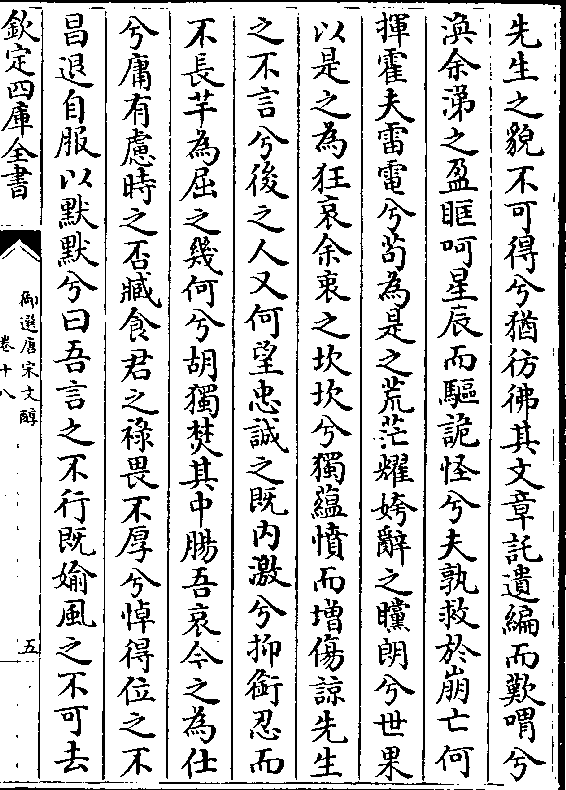 先生之貌不可得兮猶彷彿其文章託遺編而歎喟兮
渙余涕之盈眶呵星辰而驅詭怪兮夫孰救於崩亡何
揮霍夫雷電兮茍為是之荒茫耀姱辭之矘朗兮世果
以是之為狂哀余衷之坎坎兮獨蘊憤而增傷諒先生
之不言兮後之人又何望忠誠之既內激兮抑銜忍而
不長芊為屈之幾何兮胡獨焚其中腸吾哀今之為仕
兮庸有慮時之否臧食君之祿畏不厚兮悼得位之不
昌退自服以默默兮曰吾言之不行既媮風之不可去
欽定四庫全書
御選唐宋文醇
卷十八
五